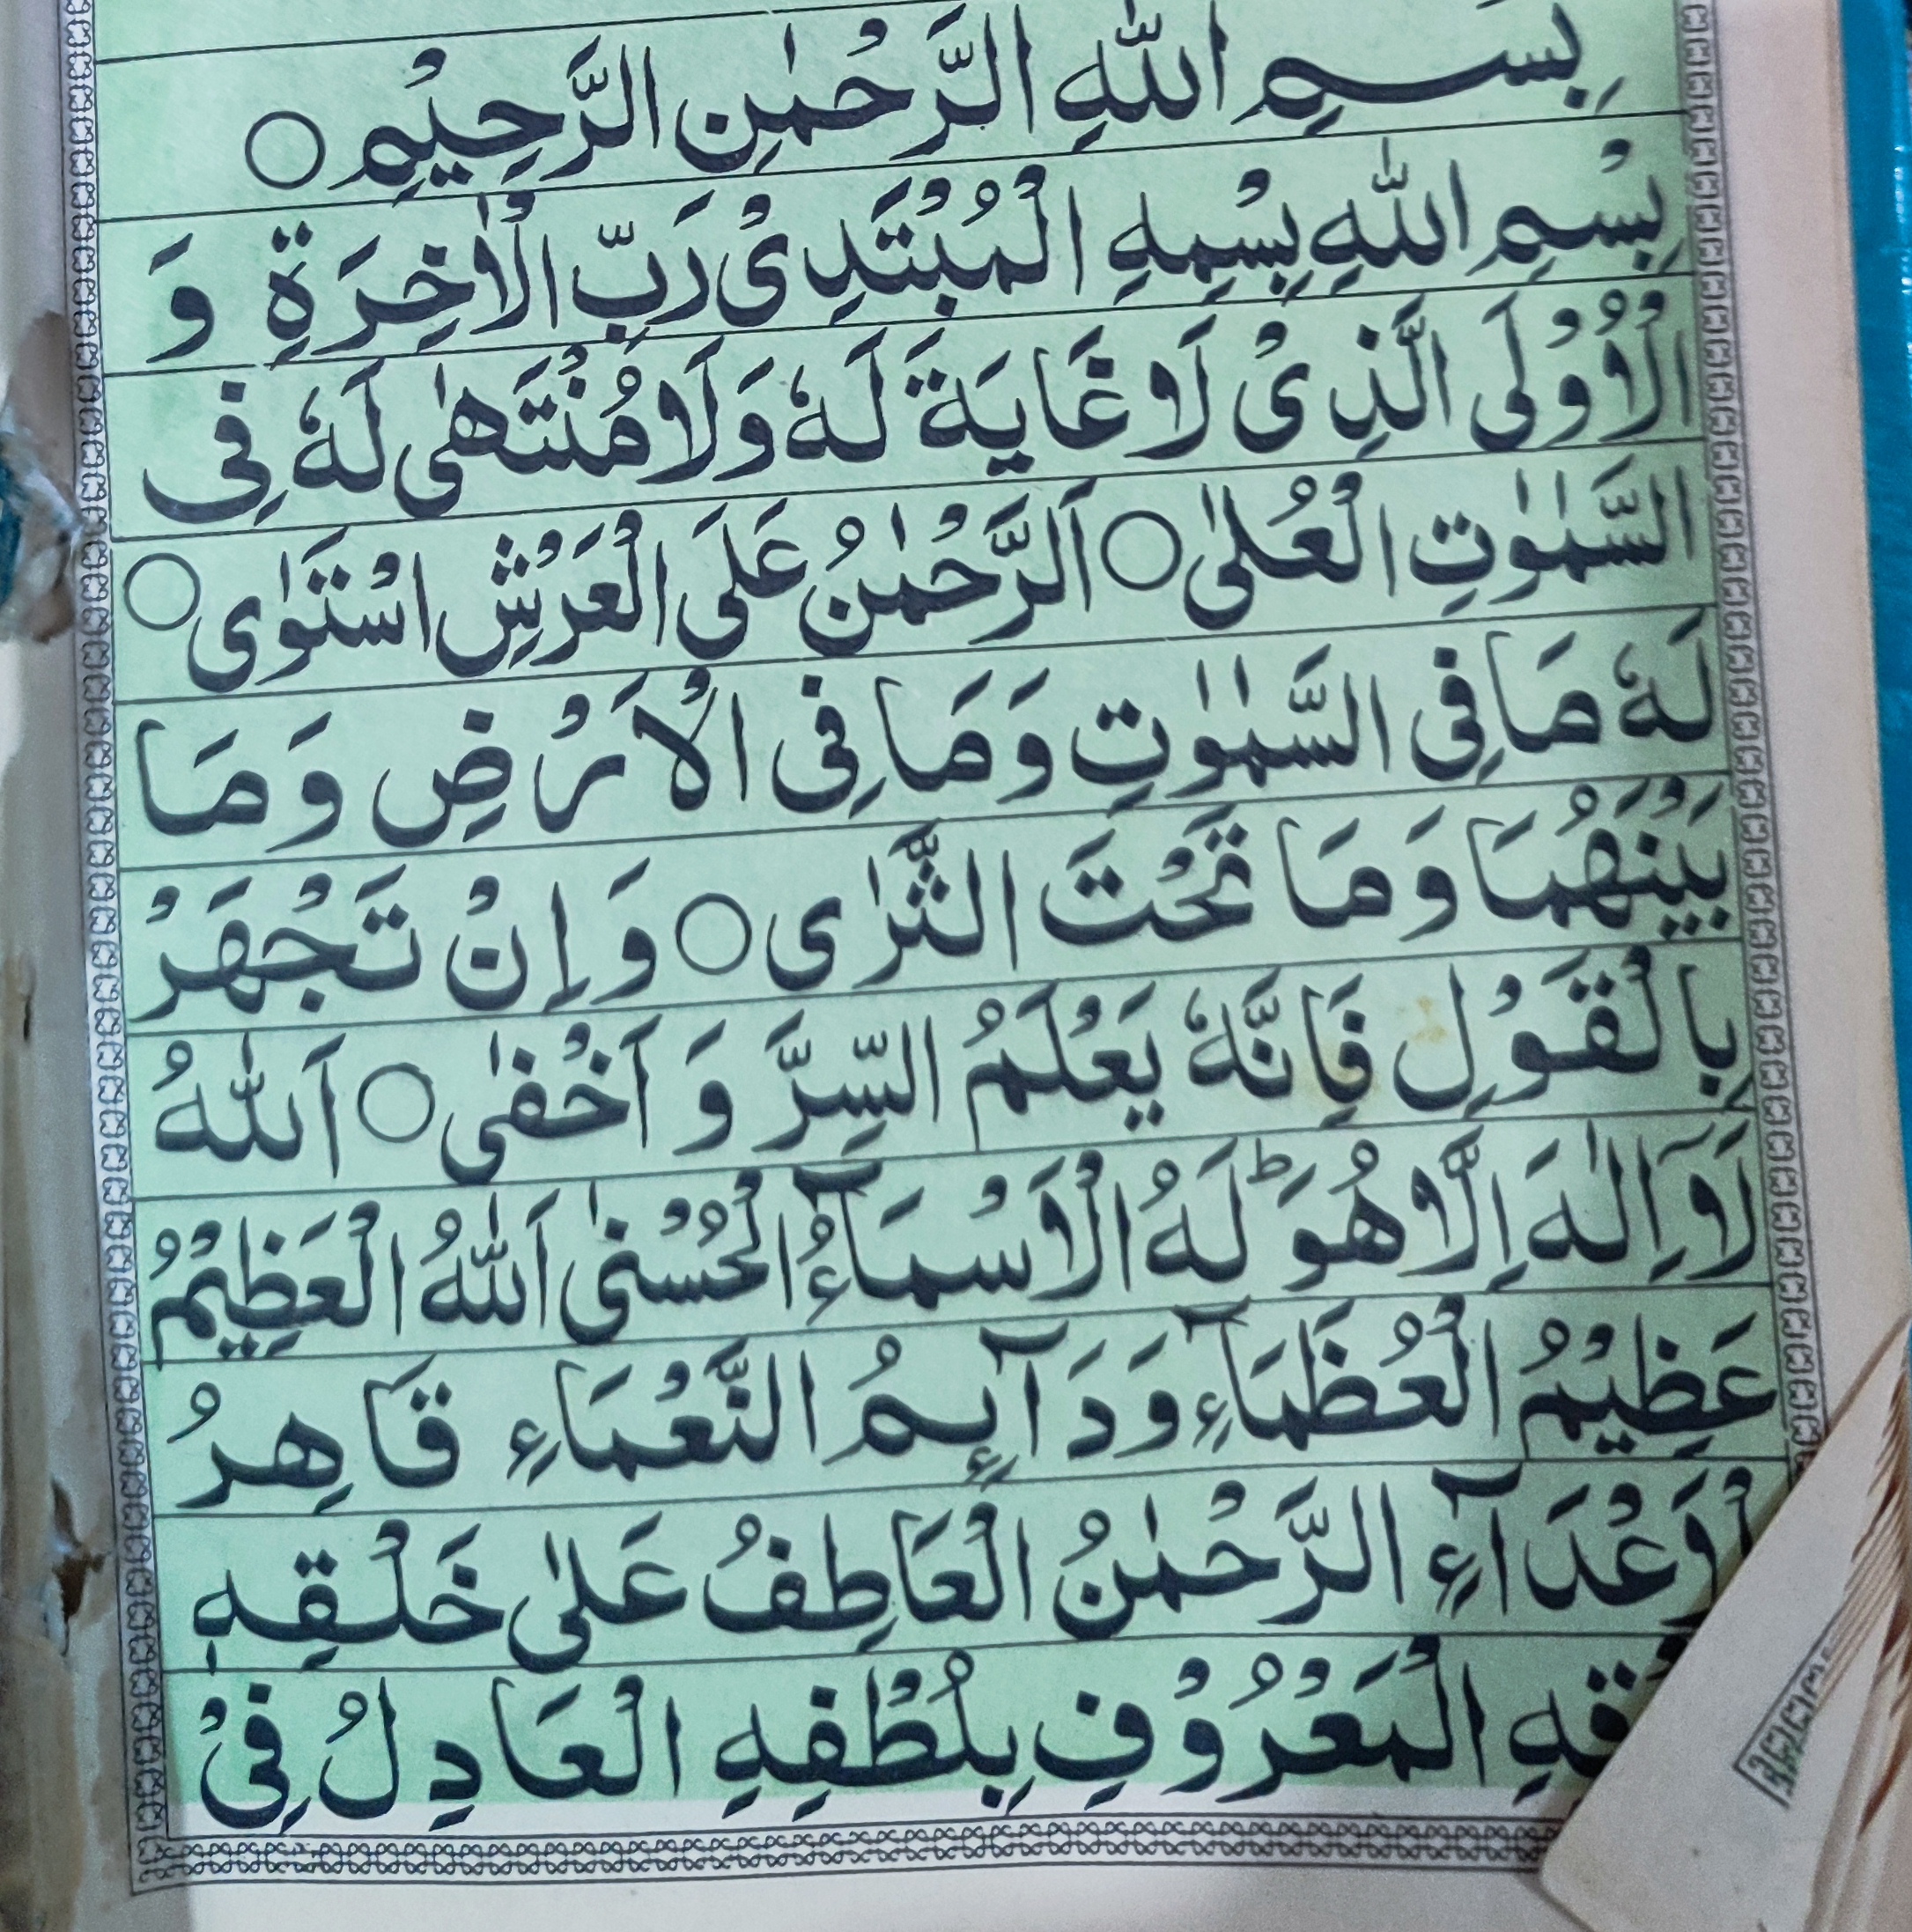 بِسْمِ اللّٰهِ الرَّحْمٰنِ الرَّحِيْمِ ○
بِسْمِ اللّٰهِ بِسْمِهِ الْمُبْتَدِیْ رَبِّ الْاٰخِرَةِ وَ
الْاُوْلَی الَّذِیْ لَا غَايَةَ لَهٗ وَلَا مُنْتَهٰی لَهٗ فِی
السَّمٰوٰتِ الْعُلٰی ○ اَلرَّحْمٰنُ عَلَی الْعَرْشِ اسْتَوٰی ○
لَهٗ مَا فِی السَّمٰوٰتِ وَمَا فِی الْاَرْضِ وَمَا
بَيْنَهُمَا وَمَا تَحْتَ الثَّرٰی ○ وَاِنْ تَجْهَرْ
بِالْقَوْلِ فَاِنَّهٗ يَعْلَمُ السِّرَّ وَ اَخْفٰی ○ اَللّٰهُ
لَآ اِلٰهَ اِلَّا هُوَ ؕ لَهُ الْاَسْمَآءُ الْحُسْنٰی اَللّٰهُ الْعَظِيْمُ
عَظِيْمُ الْعُظَمَآءِ وَدَآئِمُ النَّعْمَاءِ قَاهِرُ
الْاَعْدَآءِ الرَّحْمٰنُ الْعَاطِفُ عَلٰی خَلْقِهٖ
الْمَعْرُوْفِ بِلُطْفِهِ الْعَادِلُ فِیْ